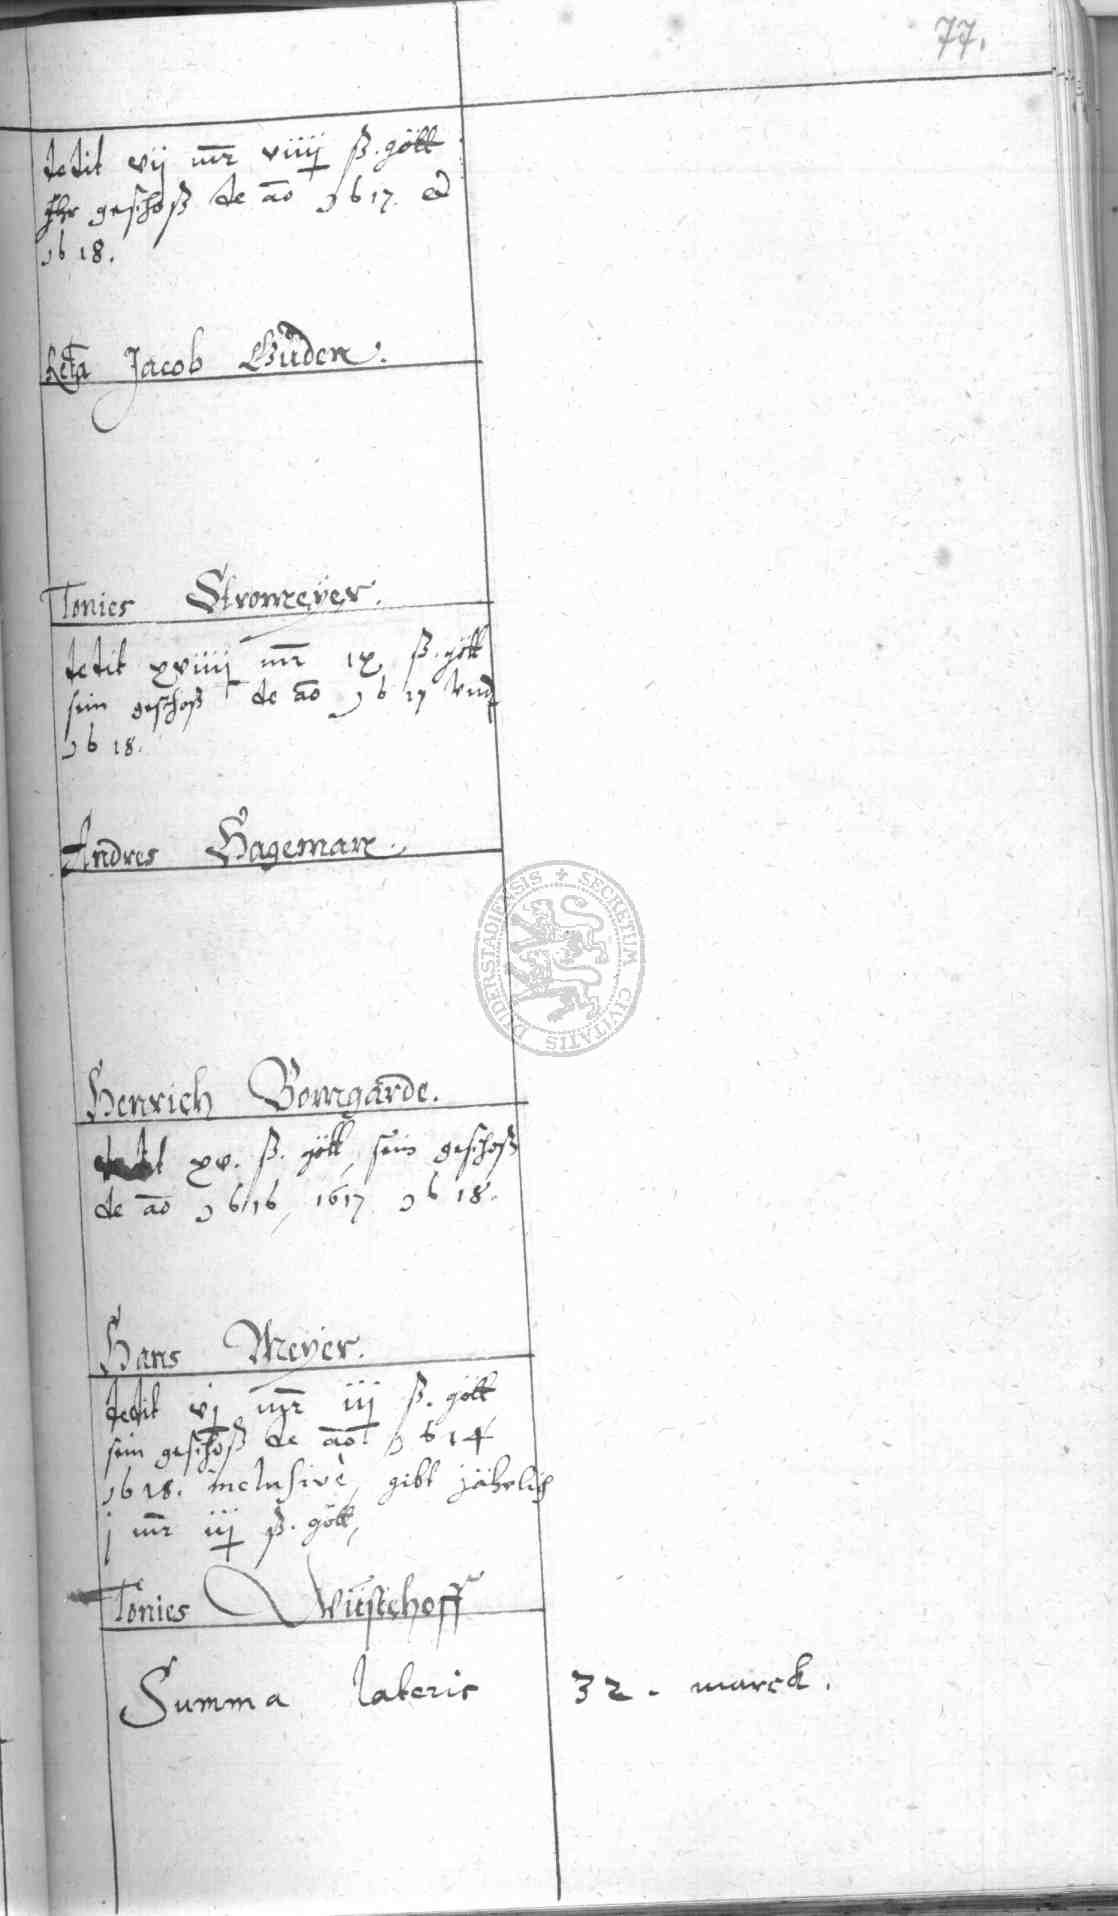 77.
dedit vij mr viiij ß. gött
Ihr geschoß de ao 1617. et
1618.
Relicta Jacob Güden.
Tonies Stromeyer.
dedit xviiij mr ix ß. gött
sein geschoß de ao 1617 vnd
1618.
Andres Hageman.
Henrich Bomgarde.
dedit xv. ß. gött, sein geschoß
de ao 1616, 1617 1618.
Hans Meyer.
dedit vj mr iij ß. gött
sein geschoß de ao. 1614
1618. inclusivè, gibt jährlich
j mr iij ß. gött,
Tönies Wüstehoff
Summa lateris 32. marck.
SECRETUM CIVITATIS DUDERSTADIENSIS